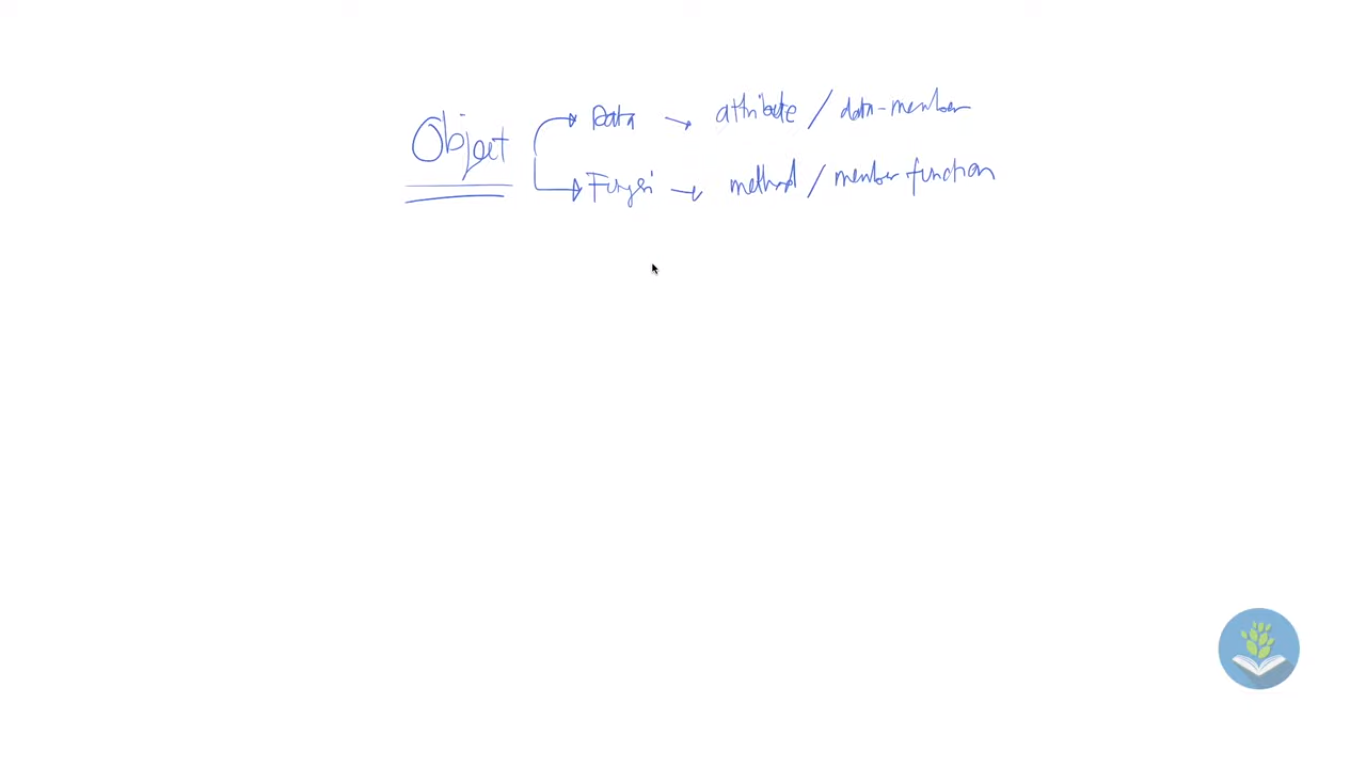 Object
Data → attribute / data-member
Fungsi → method / member function